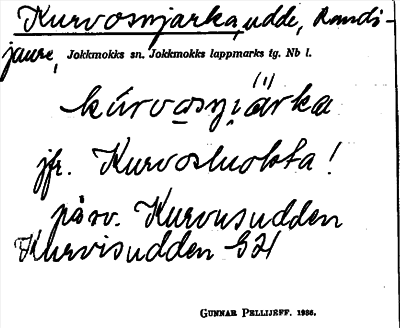 Kurvosnjarka, udde, Randi-
jaure, Jokkmokks sn. Jokkmokks lappmarks tg. Nb l.
kúrvosnjárka
jfr. Kurvosluokta!
på sv. Kurvusudden
Kurvisudden GH
GUNNAR PELLIJEFF. 1936.